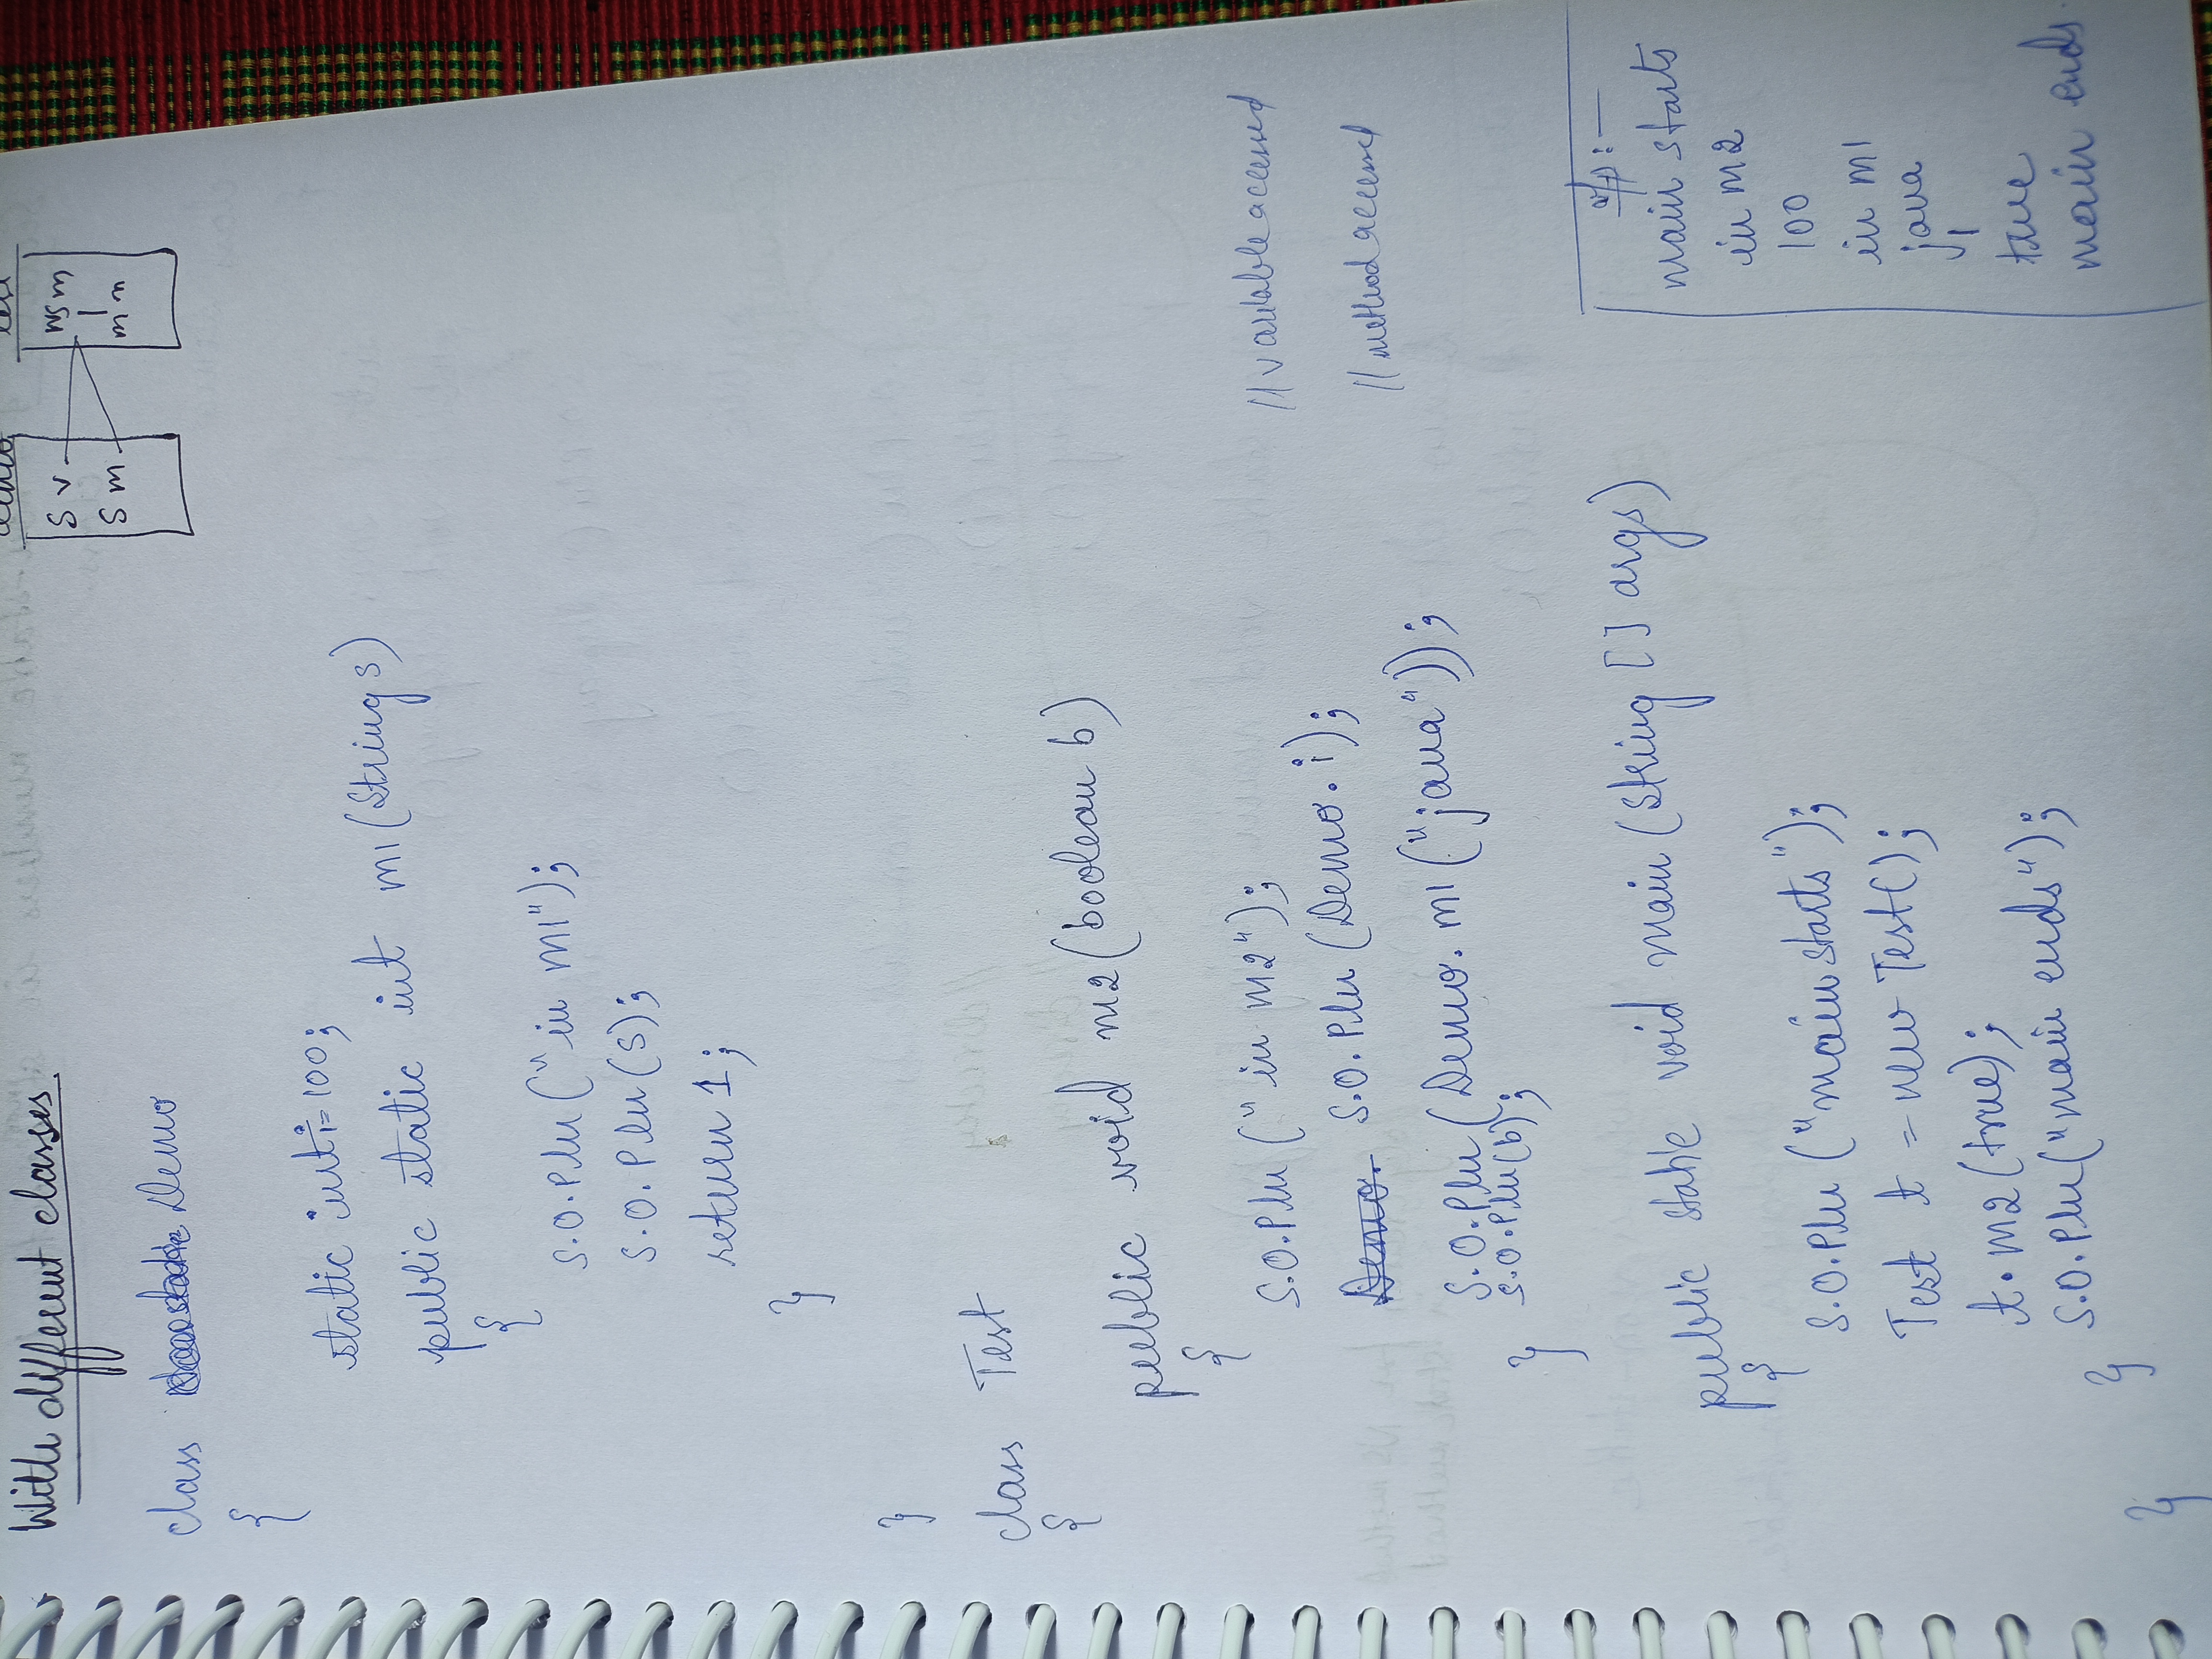 With different classes
demo test
S V
S m
NS m
m n
class Demo
{
static int i=100;
public static int m1(String s)
{
S.O.Pln("in m1");
S.O.Pln(s);
return 1;
}
}
class Test
{
public void m2(boolean b)
{
S.O.Pln("in m2");
S.O.Pln(Demo.i); //variable accessed
S.O.Pln(Demo.m1("java")); //method accessed
S.O.Pln(b);
}
public static void main(String[] args)
{
S.O.Pln("main starts");
Test t = new Test();
t.m2(true);
S.O.Pln("main ends");
}
}
o/p:-
main starts
in m2
100
in m1
java
1
true
main ends.